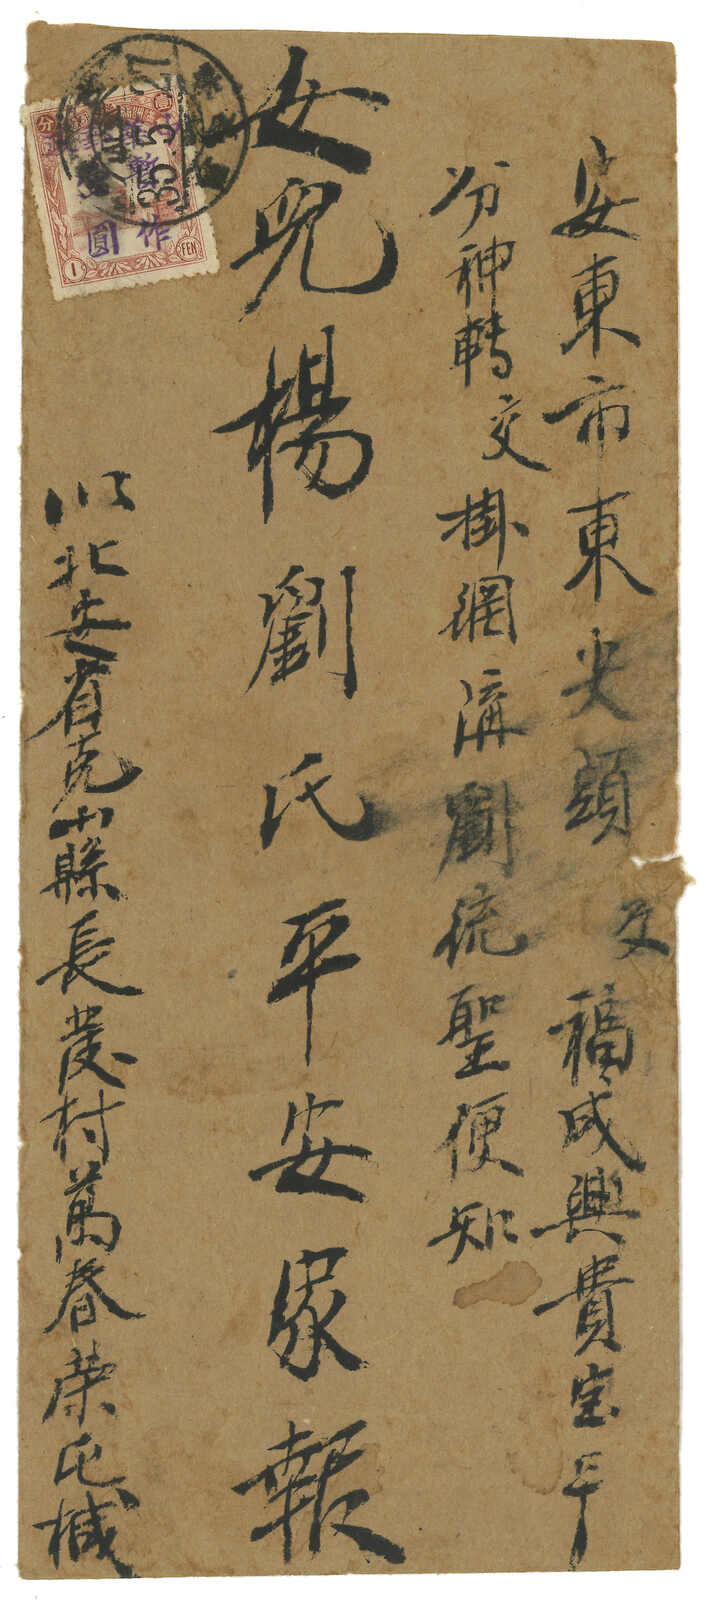 安東市東尖頭交福成興貴宝号
分神轉交掛網溝劉統聖便知
女兒楊劉氏平安家報
北安省克山縣長發村萬春荣屯椷
暫作
圓
分
1
FEN
35.3.27